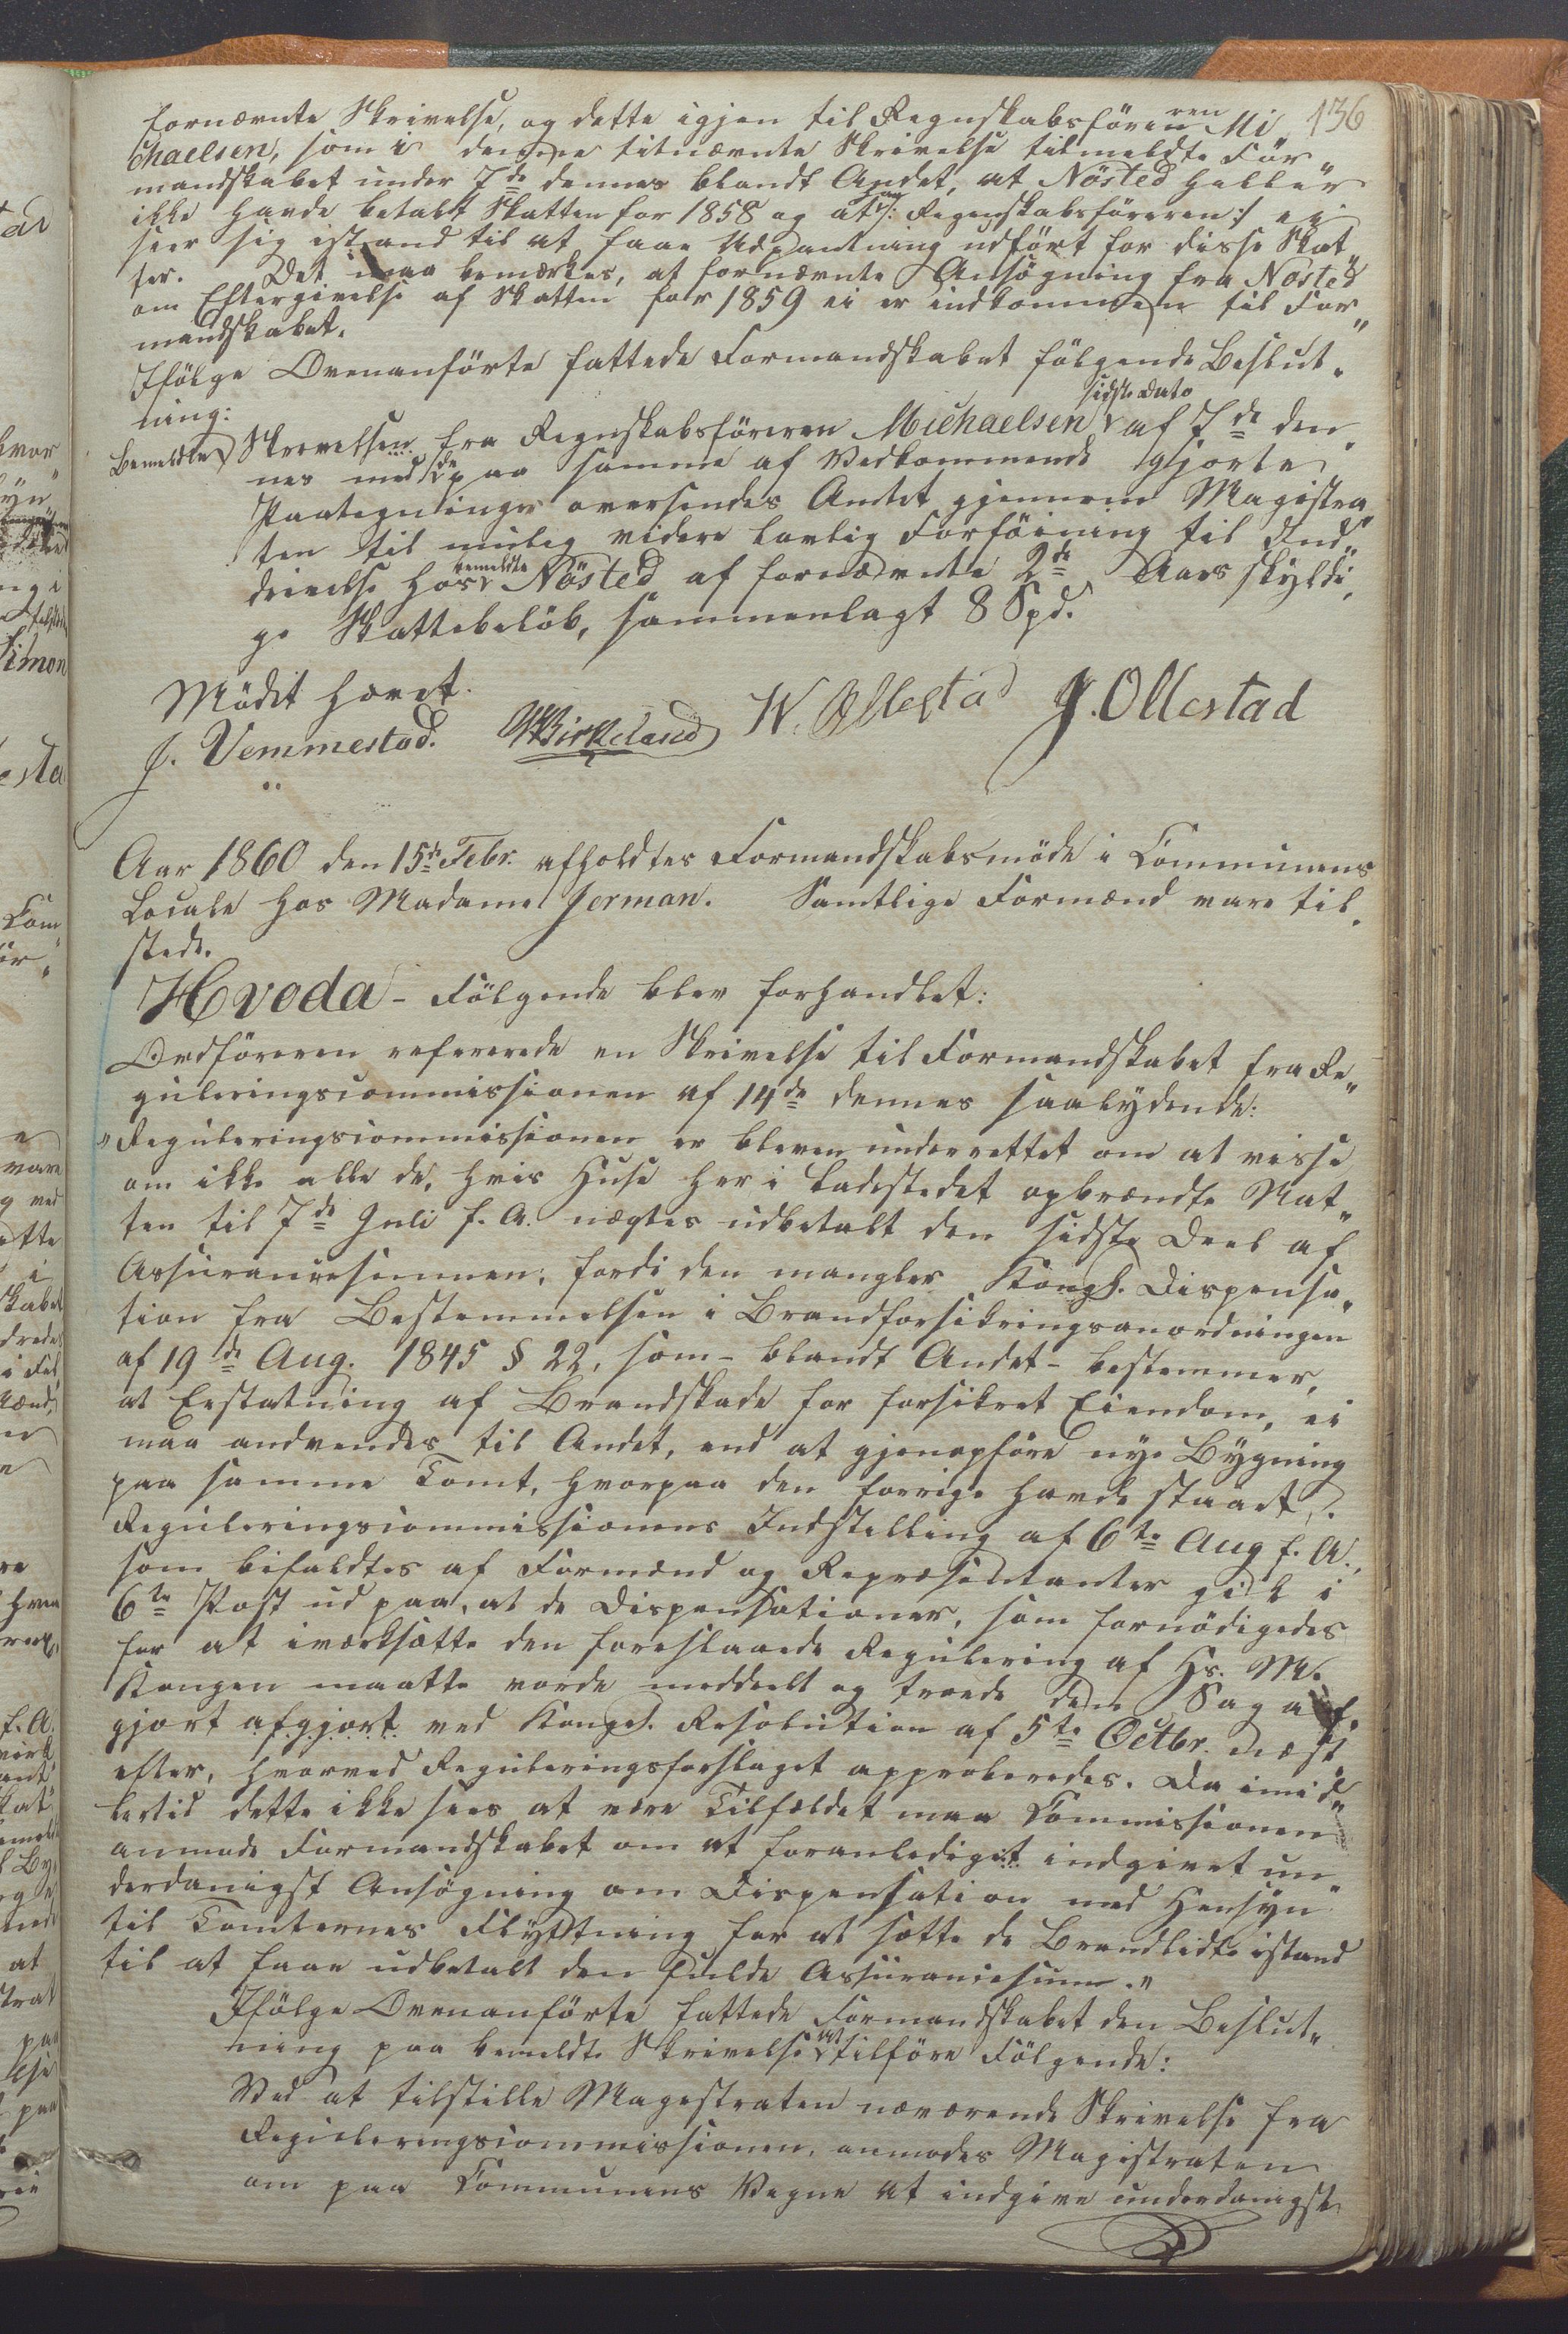 136
fornævnte Skrivelse, og dette igjen til Regnskabsföreren Mi„
chaelsen, som i denne titnævnte Skrivelse tilmeldte For„
mandskabet under 7de dennes blandt Andet, at Nösted heller
ikke havde betalt Skatten for 1858 og at han /: Regnskabsföreren :/ ei
seer sig istand til at faae Udpantning udfört for disse Skat„
ter. Det maa bemærkes, at fornævnte Ansögning fra Nösted
om Eftergivelse af Skatten for 1859 ei er indkommen til For„
mandskabet.
Ifölge Ovenanförte fattede Formandskabet fölgende Beslut„
ning:
sidste Dato
Bemeldte Skrivelsen fra Regnskabsföreren Michaelsen af 7de den„
nes med de paa samme af Vedkommende gjorte
Paategninger oversendes Amtet gjennem Magistra„
ten til mulig videre lovlig Forföining til Ind„
drivelse hos bemeldte Nösted af fornævnte 2de Aars skyldi„
ge Skattebelöb, sammenlagt 8 Spd.
Mödet hævet.
J. Vemmestad. Birkeland W. Ollestad J. Ollestad
Aar 1860 den 15de Febr. afholdtes Formandskabsmöde i Communens
Locale hos Madame Jerman. Samtlige Formænd vare til„
stede.
Hvoda - Fölgende blev forhandlet:
Ordföreren refererede en Skrivelse til Formandskabet fra Re„
guleringscommissionen af 14de dennes saalydende:
„Reguleringscommissionen er bleven underrettet om at visse
om ikke alle de, hvis Huse her i Ladestedet opbrændte Nat„
ten til 7de Juli f. A. nægtes udbetalt den sidste Deel af
Assurancesummen, fordi den mangler Kongl. Dispensa„
tion fra Bestemmelsen i Brandforsikringsanordningen
af 19de Aug. 1845 § 22, som - blandt Andet - bestemmer,
at Erstatning af Brandskade for forsikret Eiendom, ei
maa andvendes til Andet, end at gjenopföre nye Bygning
paa samme Tomt, hvorpaa den forrige havde staaet.
Reguleringscommissionens Indstilling af 6te Aug f. A.,
som bifaldtes af Formænd og Repræsentanter gik i
6te Post ud paa, at de Dispensationer, som fornödigedes
for at iværksætte den foreslaaede Regulering af Hs. M.
Kongen maatte vorde meddeelt og troede den Sag af„
gjort afgjort ved Kongel. Resolution af 5te Octbr. næst
efter, hvorved Reguleringsforslaget approberedes. Da imid„
lertid dette ikke sees at være Tilfældet maa Commissionen
anmode Formandskabet om at foranlediget indgivet un„
derdanigst Ansögning om Dispensation med Hensyn
til Tomternes Flyttning for at sætte de Brandlidte istand
til at faae udbetalt den fulde Assurancesum.„
Ifölge Ovenanförte fattede Formandskabet den Beslut„
ning paa bemeldte Skrivelse at tilföre Fölgende:
Ved at tilstille Magestraten nærværende Skrivelse fra
Reguleringscommissionen, anmodes Magistraten
om paa Communens Vegne at indgive underdanigst